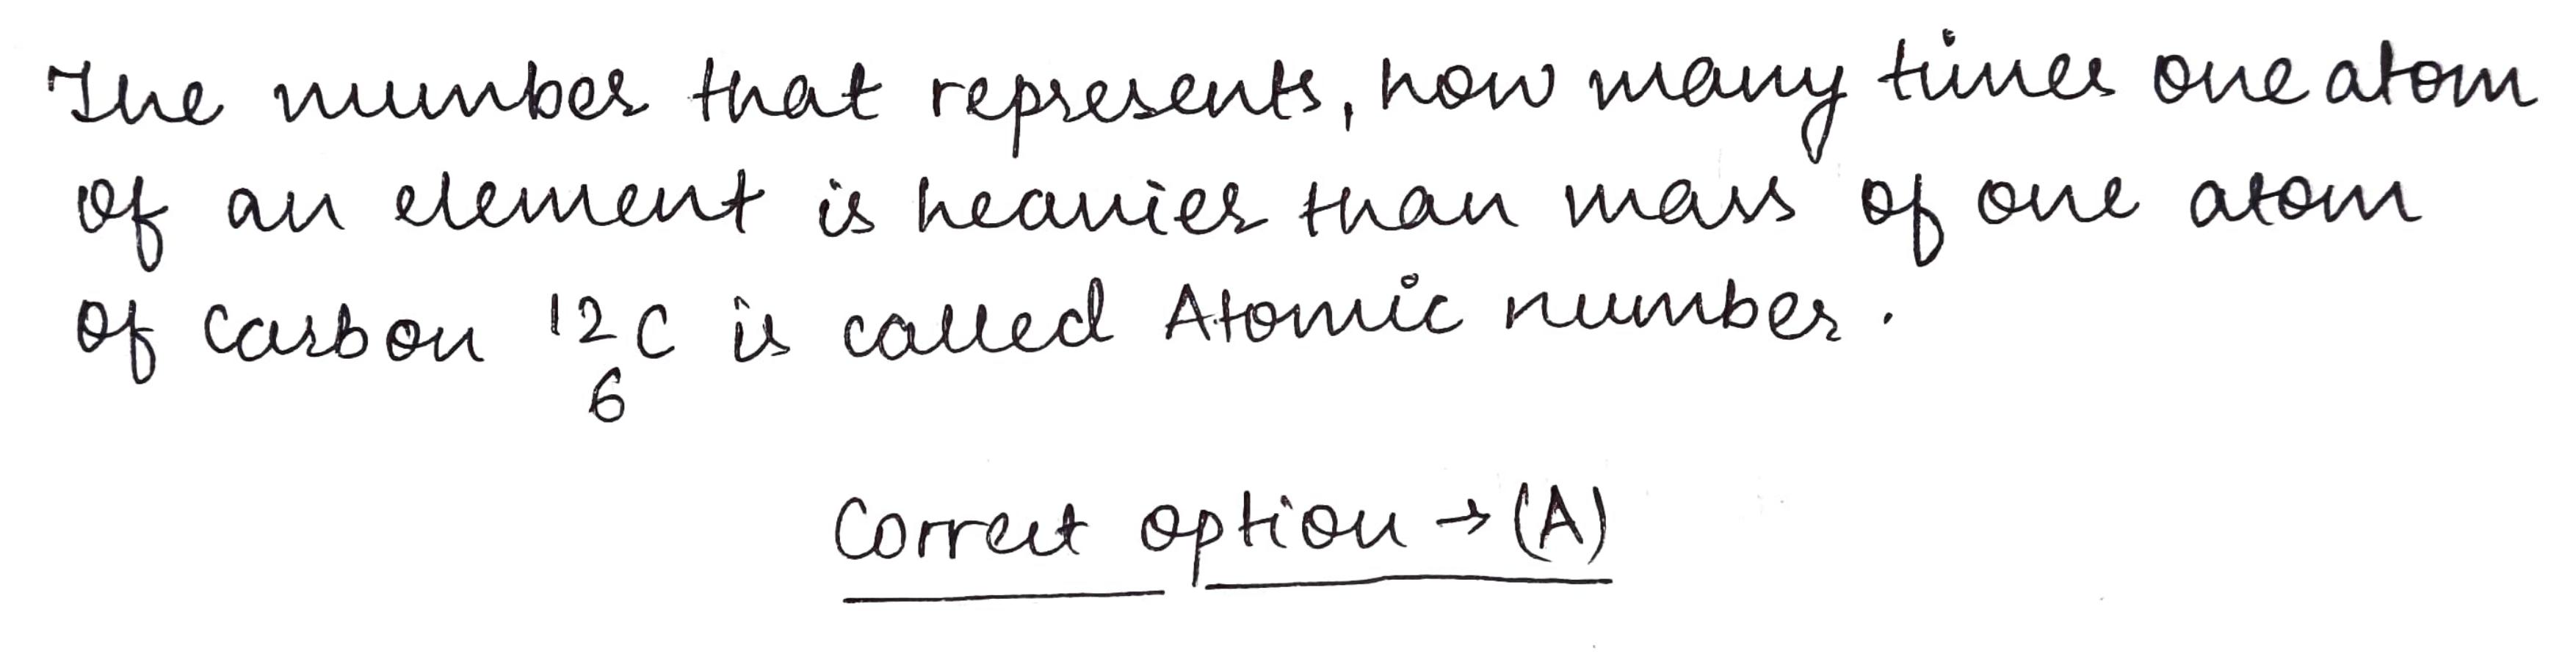 The number that represents, how many times one atom
of an element is heavier than mass of one atom
of carbon 12 C is called Atomic number.
6
Correct option → (A)